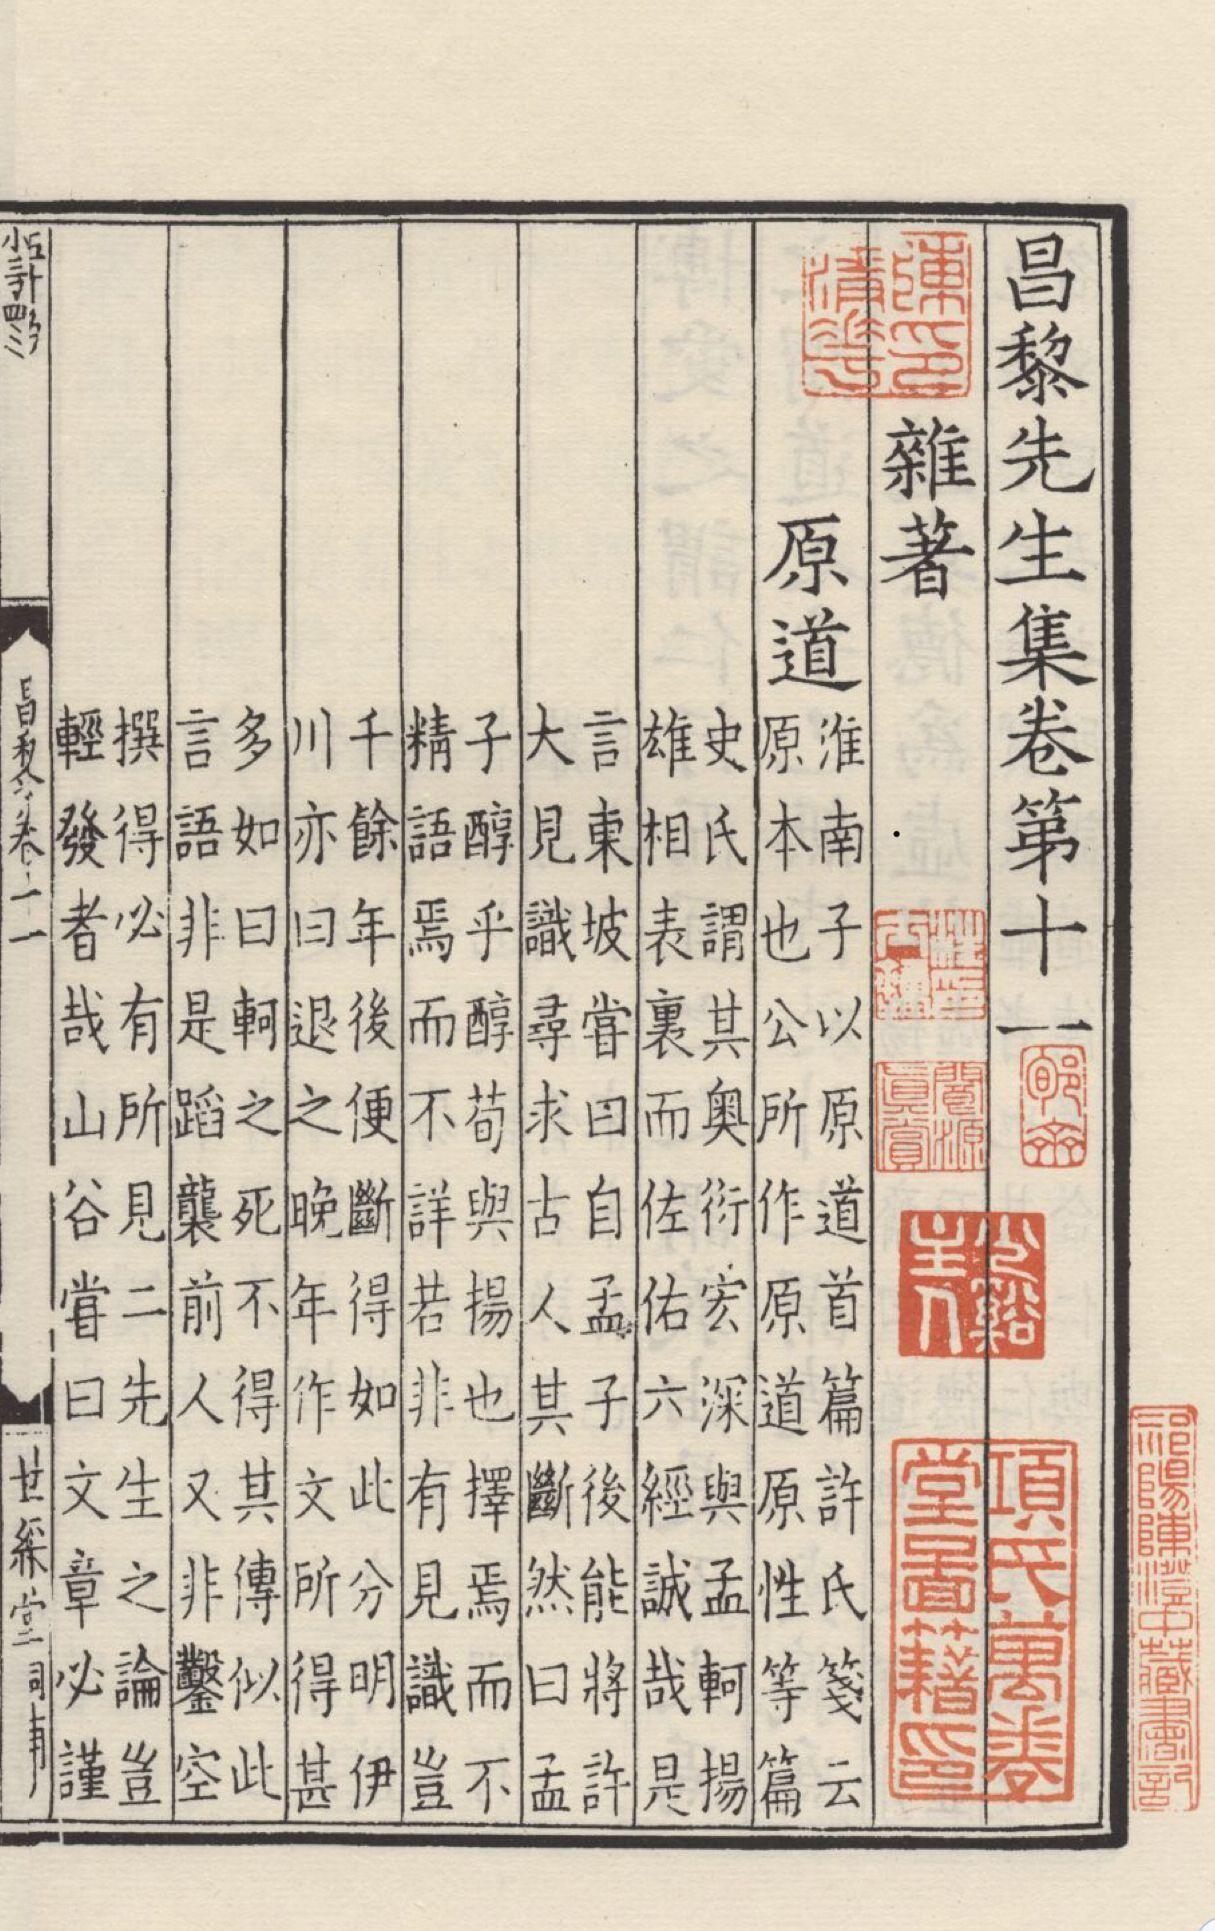 昌黎先生集卷第十一
雜著
原道
淮南子以原道首篇許氏箋云
原本也公所作原道原性等篇
史氏謂其奧衍宏深與孟軻揚
雄相表裏而佐佑六經誠哉是
言東坡嘗曰自孟子後能將許
大見識尋求古人其斷然曰孟
子醇乎醇荀與揚也擇焉而不
精語焉而不詳若非有見識豈
千餘年後便斷得如此分明伊
川亦曰退之晚年作文所得甚
多如曰軻之死不得其傳似此
言語非是蹈襲前人又非鑿空
撰得必有所見二先生之論豈
輕發者哉山谷嘗曰文章必謹
昌黎卷十一
世綵堂
項氏萬卷
堂圖籍印